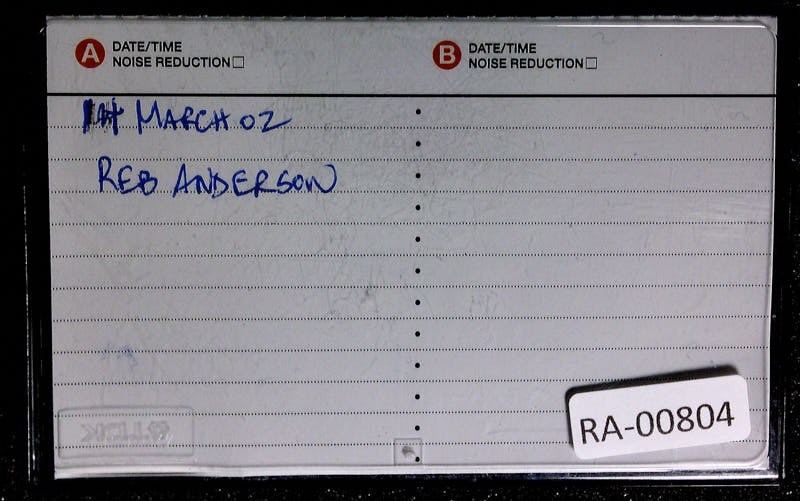 A DATE/TIME
NOISE REDUCTION
B DATE/TIME
NOISE REDUCTION
MARCH 02
REB ANDERSON
RA-00804
TDK